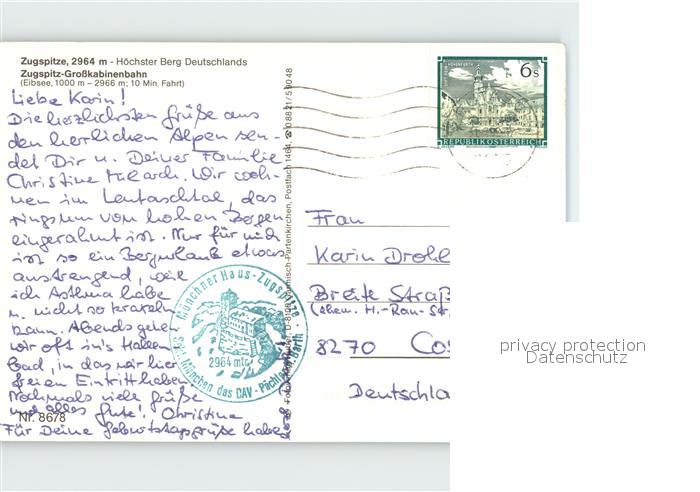 Zugspitze, 2964 m - Höchster Berg Deutschlands
Zugspitz-Großkabinenbahn
(Eibsee, 1000 m – 2966 m; 10 Min. Fahrt)
Liebe Karin!
Die herzlichsten Grüße aus
den herrlichen Alpen sen-
det Dir u. Deiner Familie
Christine Wir woh-
nen im Leutaschtal, das
ringsum von hohen Bergen
eingerahmt ist. Nur für mich
ist so ein Bergurlaub etwas
anstrengend, weil
ich Asthma habe
u. nicht so kraxeln
kann. Abends gehen
wir oft in's Hallen
bad, in das wir hier
freien Eintritt haben
Nochmals viele Grüße
und alles Gute! Christine
Nr. 8678
Für Deine Geburtstagsgrüße habe
Münchner Haus - Zugspitze
2964 mtr.
München des DAV - Pächter Barth
Garmisch-Partenkirchen, Postfach 1464, ☎ 08821/59048
6 S
REPUBLIK ÖSTERREICH
Frau
Karin Drohl
Breite Straß
(ehem. H.-Rau-Str
8270 Cos
Deutschla
privacy protection
Datenschutz